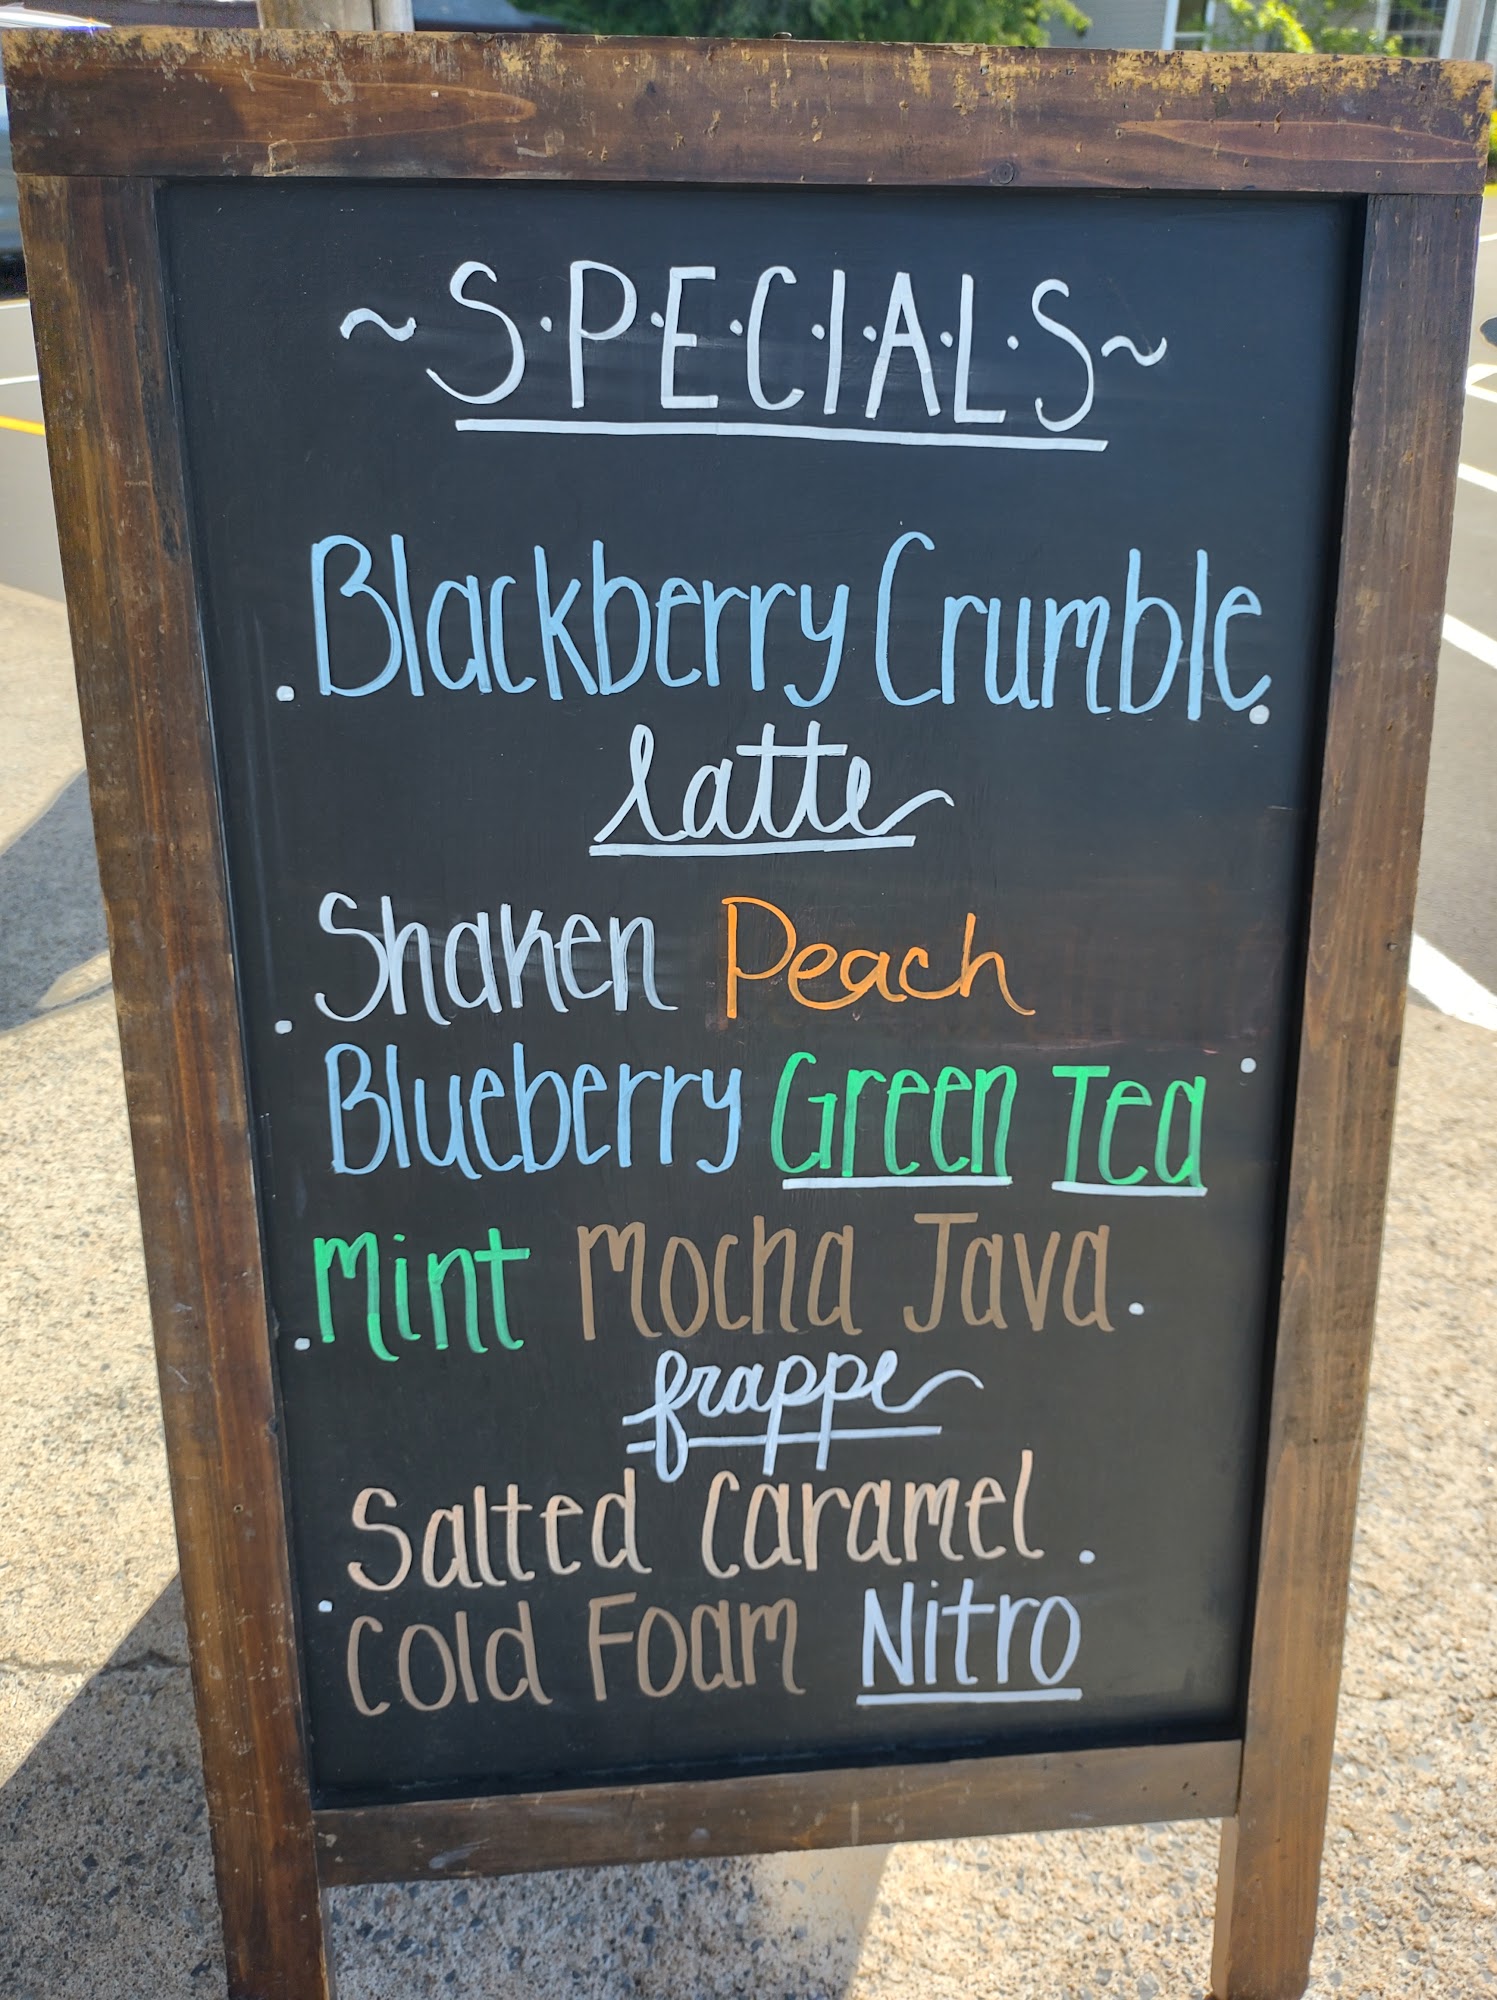 ~S·P·E·C·I·A·L·S~
. Blackberry Crumble .
latte
. Shaken Peach
Blueberry Green Tea .
. Mint Mocha Java .
frappe
. Salted Caramel .
Cold Foam Nitro